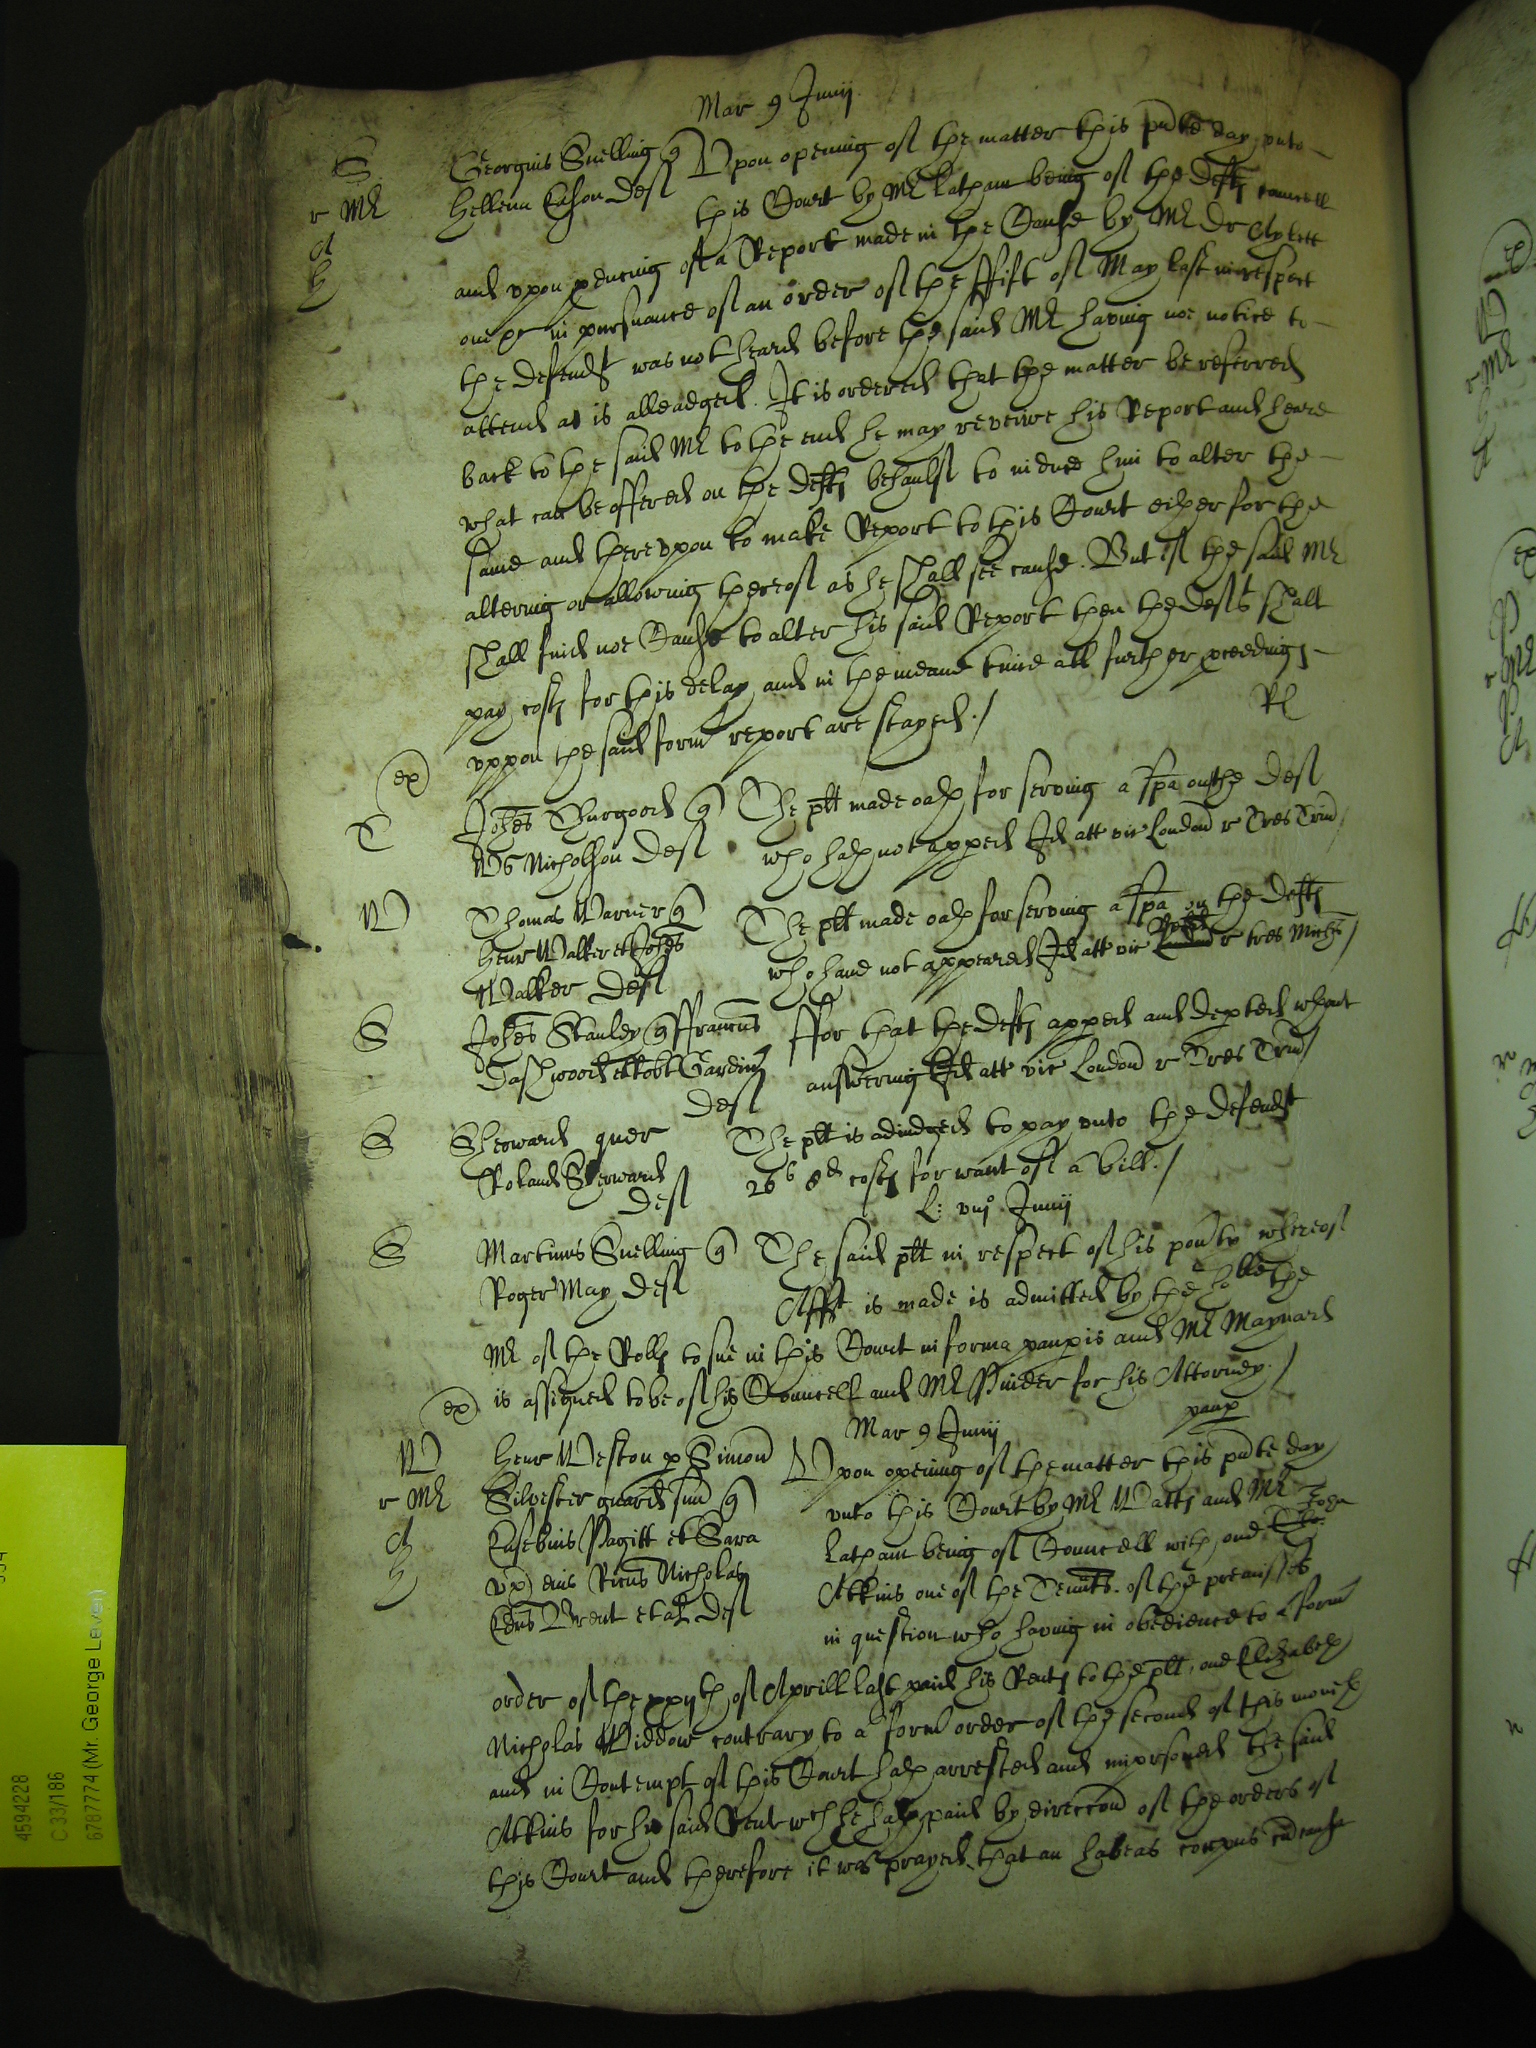 Mar 9 Junij
S
r Mr
A
H
Georgius Snelling q Vpon opening of the matter this pnte day vnto
Hellena Eason def this Court by Mr Latham being of the defts councell
and vpon pducing of a Report made in the Cause by Mr Dr Aylett
one &c in pursuance of an order of the ffift of May last in respect
the defendt was not heard before the said Mr having noe notice to
attend as is alleadged. It is ordered that the matter be referred
back to the said Mr to the end he may reveiwe his Report and heare
what can be offered on the defts behaulf to induce him to alter the
same and therevpon to make Report to this Court either for the
altering or allowing thereof as he shall see cause. But if the said Mr
shall find noe Cause to alter his said Report then the defts shall
pay costs for this delay and in the meane time all further pceedings
vppon the said form report are stayed./
Rl
ex
T
Johes Thurgood q The plt made oath for serving a spa on the def
Ws Nicholson def who hath not apped Id att vic London r Tres Trin/
W
Thomas Warner q The plt made oath for serving a spa on the defts
Henr Walker et Johes who have not appeared Id att vic London r tres Michis/
Walker def
S
Johes Stanley q ffrancus ffor that the defts apped and depted wthout
Dashwood et Robt Gardiner answering Id att vic London r Tres Trin/
def
S
Sherward quer The plt is adiudged to pay vnto the defendt
Roland Sherward 26s 8d costs for want of a bill./
def
L: viijo Junij
S
Martinus Snelling q The said plt in respect of his povty whereof
Roger May def Afft is made is admitted by the ho:ble the
Mr of the Rolls to sue in this Court in forma paupis and Mr Maynard
is assigned to be of his Councell and Mr Pinder for his Attorney./
paup
Mar 9 Junij
ex
W
r Mr
A
H
Henr Weston p Simon Vpon opening of the matter this pnte day
Silvester guard sun q vnto this Court by Mr Watts and Mr
Eusebius Pagitt et Sara Latham being of Councell with one John
vx eius Ricus Nicholas Atkins one of the Tennts of the premisses
Edrus Brent et al def in question who having in obedience to a form
order of the xxvjth of Aprill last paid his Rents to the plt, one Elizabeth
Nicholas Widdow contrary to a form order of the second of this moneth
and in Contempt of this Court hath arrested and imprsoned the said
Atkins for his said Rent wch he hath paid by direccon of the orders of
this Court and therefore it was prayed that an habeas corpus cu causa
4594228
C 33/186
6787774 (Mr. George Leven)